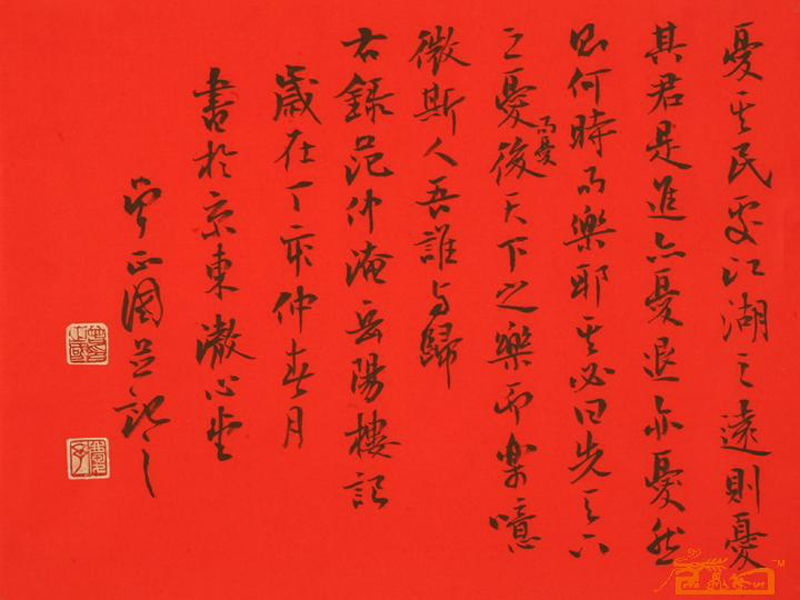 憂其民處江湖之遠則憂
其君是進亦憂退亦憂然
則何時而樂耶其必曰先天下
之憂而憂後天下之樂而樂噫
微斯人吾誰与歸
右錄范仲淹岳陽樓記
歲在丁亥仲春月
書於京東澂心堂
曾正國并記之